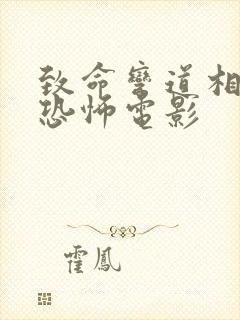 致命彎道相
恐怖電影
霍鳳